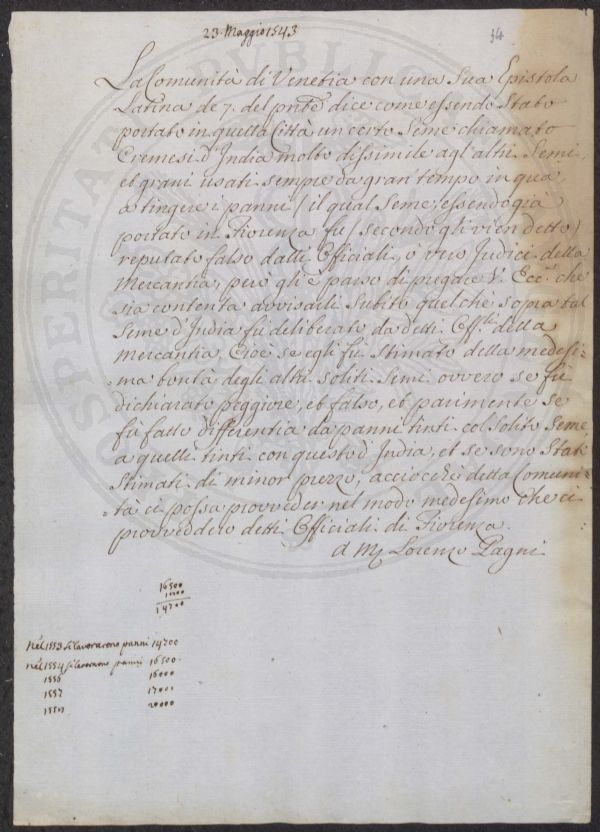 23. Maggio 1543
34
La Comunità di Venetia con una sua Epistola
Latina de 7. del pnte dice come essendo stato
portato in quella Città un certo seme chiamato
Cremesi d'India molto dissimile agl'altri semi,
et grani usati sempre da gran tempo in quà,
a tingere i panni / il qual seme, essendo già
portato in Fiorenza fu / secondo gli vien detto /
reputato falso dalli Officiali, ò vero Judici della
Mercantia, però gli è parso di pregare V. Ecc. che
sia contenta avvisarli subito quel che sopra tal
seme d'India fù deliberato da detti Offli della
Mercantia, Cioè se egli fù stimato della medesi=
=ma bontà degli altri soliti semi ovvero se fù
dichiarato peggiore, et falso, et parimente se
fù fatto differentia da panni tinti col solito seme
a quelli tinti con questo d'India, et se sono stati
stimati di minor prezzo, acciocchè detta Comuni=
=tà ci possa provveder nel modo medesimo che ci
provveddero detti Officiali di Fiorenza.
a M. Lorenzo Pagni
16500
14700
Nel 1553 si lavorarono panni 14700
Nel 1554 si lavorarono panni 16500
1556 16000
1557 17000
20000